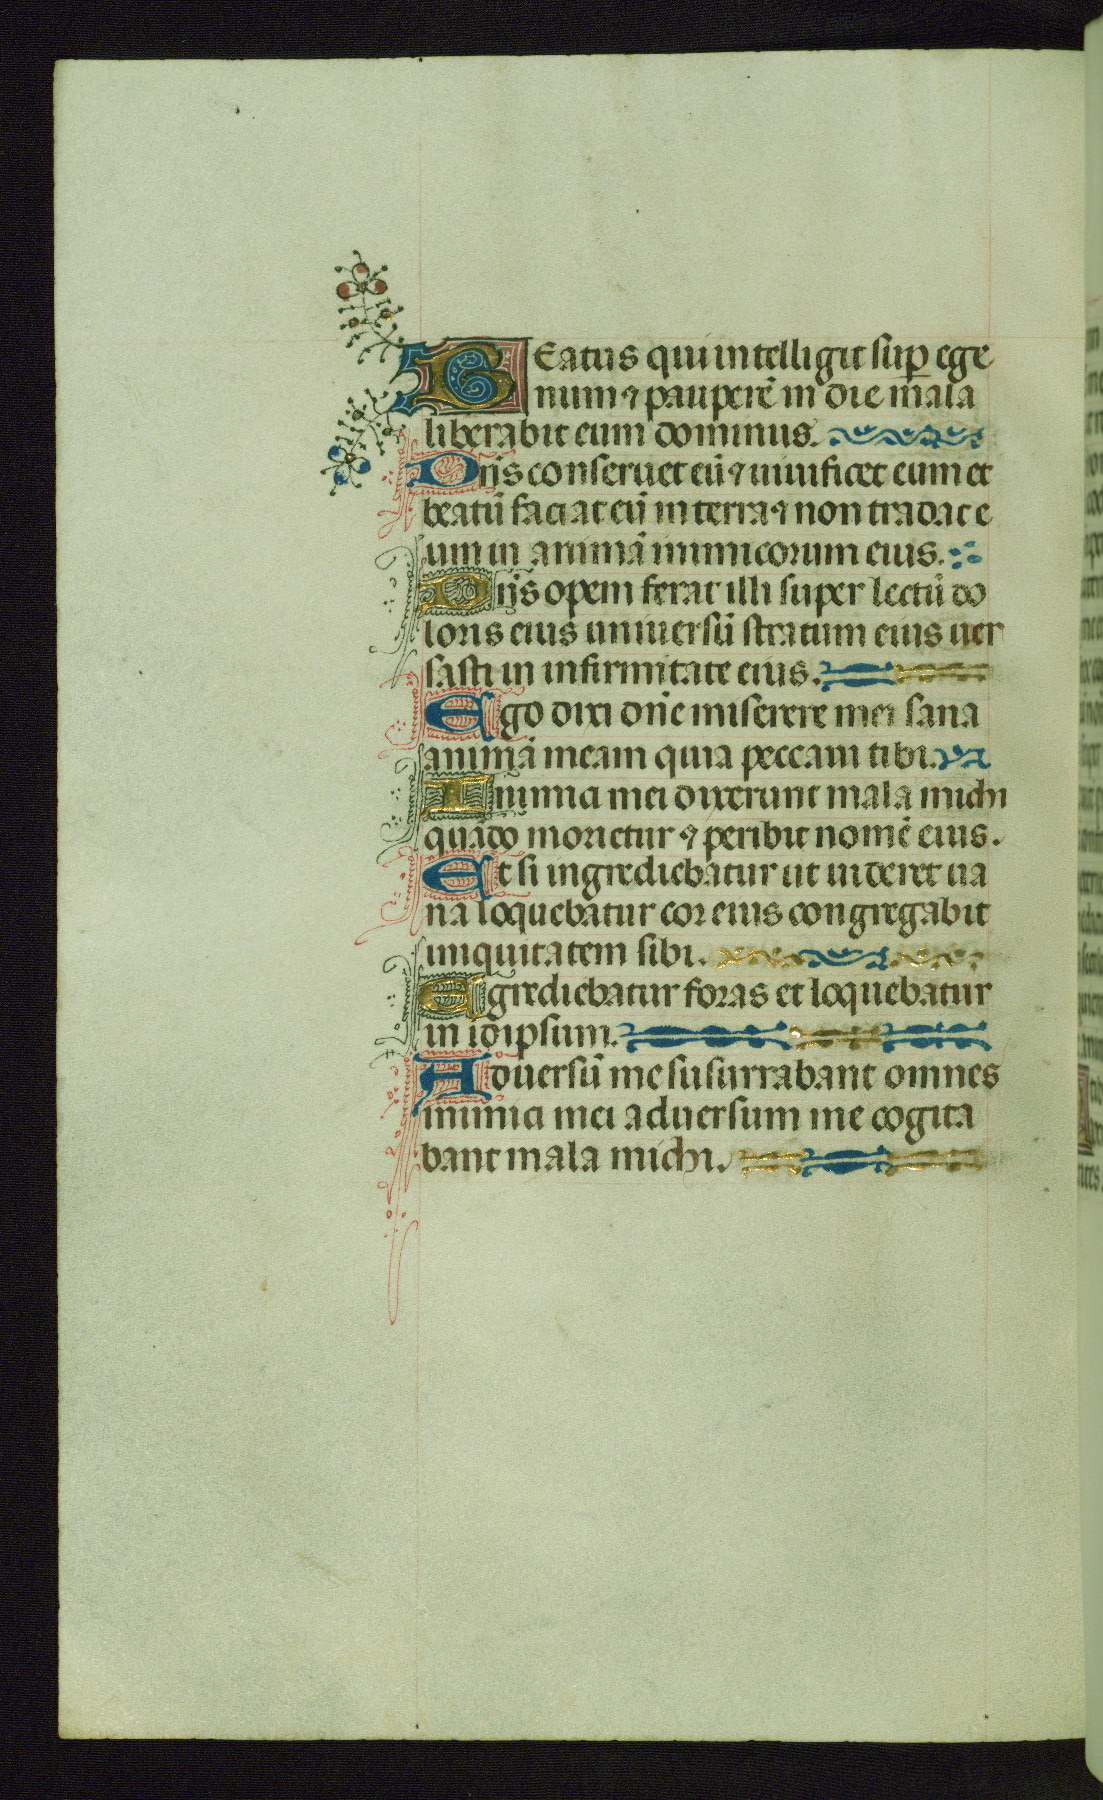 Beatus qui intelligit suꝑ ege
num ⁊ pauperē in die mala
liberabit eum dominus.
Dn̄s conseruet eū ⁊ uiuificet eum et
beatū faciat eū in terra ⁊ non tradat e
um in animā inimicorum eius.
Dn̄s opem ferat illi super lectū do
loris eius uniuersū stratum eius uer
sasti in infirmitate eius.
Ego dixi dn̄e miserere mei sana
animā meam quia peccaui tibi.
Inimici mei dixerunt mala michi
quādo morietur ⁊ peribit nomē eius.
Et si ingrediebatur ut uideret ua
na loquebatur cor eius congregabit
iniquitatem sibi.
Egrediebatur foras et loquebatur
in idipsum.
Aduersū me susurrabant omnes
inimici mei aduersum me cogita
bant mala michi.